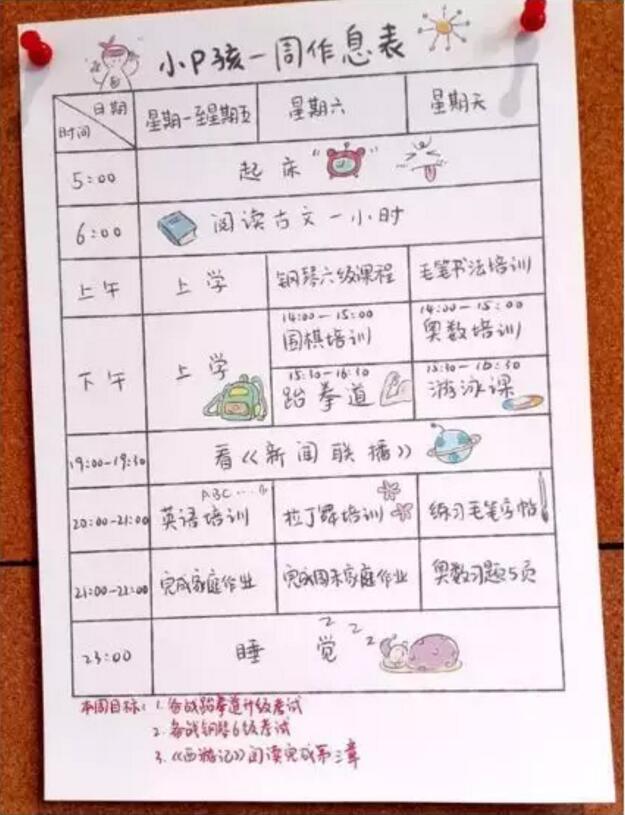 小P孩一周作息表
日期
时间
星期一至星期五 星期六 星期天
5:00 起床
6:00 阅读古文一小时
上午 上学 钢琴六级课程 毛笔书法培训
下午 上学
14:00-15:00 14:00-15:00
围棋培训 奥数培训
15:30-16:30 15:30-16:30
跆拳道 游泳课
19:00-19:30 看《新闻联播》
ABC...
20:00-21:00 英语培训 拉丁舞培训 练习毛笔字帖
21:00-22:00 完成家庭作业 完成周末家庭作业 奥数习题5页
23:00 睡觉
z z z
本周目标: 1. 备战跆拳道升级考试
2. 备战钢琴6级考试
3.《西游记》阅读完成第三章